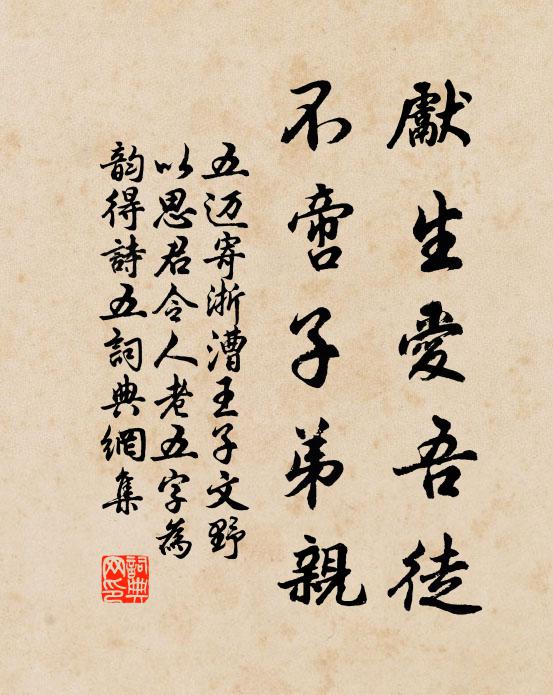 獻生愛吾徒
不啻子弟親
五迈寄浙漕王子文野
以思君令人老五字為
韵得詩五詞典網集
詞典
网印